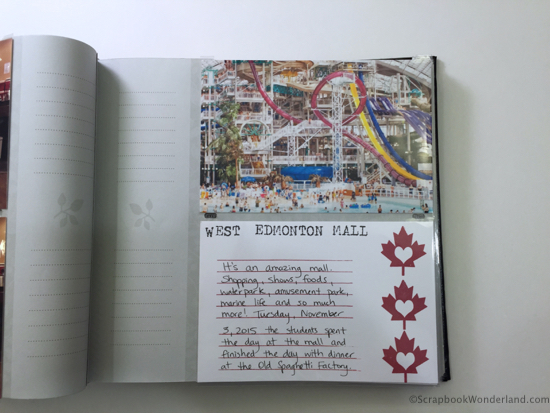 WEST EDMONTON MALL
It's an amazing mall.
Shopping, shows, foods,
waterpark, amusement park,
marine life and so much
more! Tuesday, November
3, 2015 the students spent
the day at the mall and
finished the day with dinner
at the Old Spaghetti Factory.
©ScrapbookWonderland.com